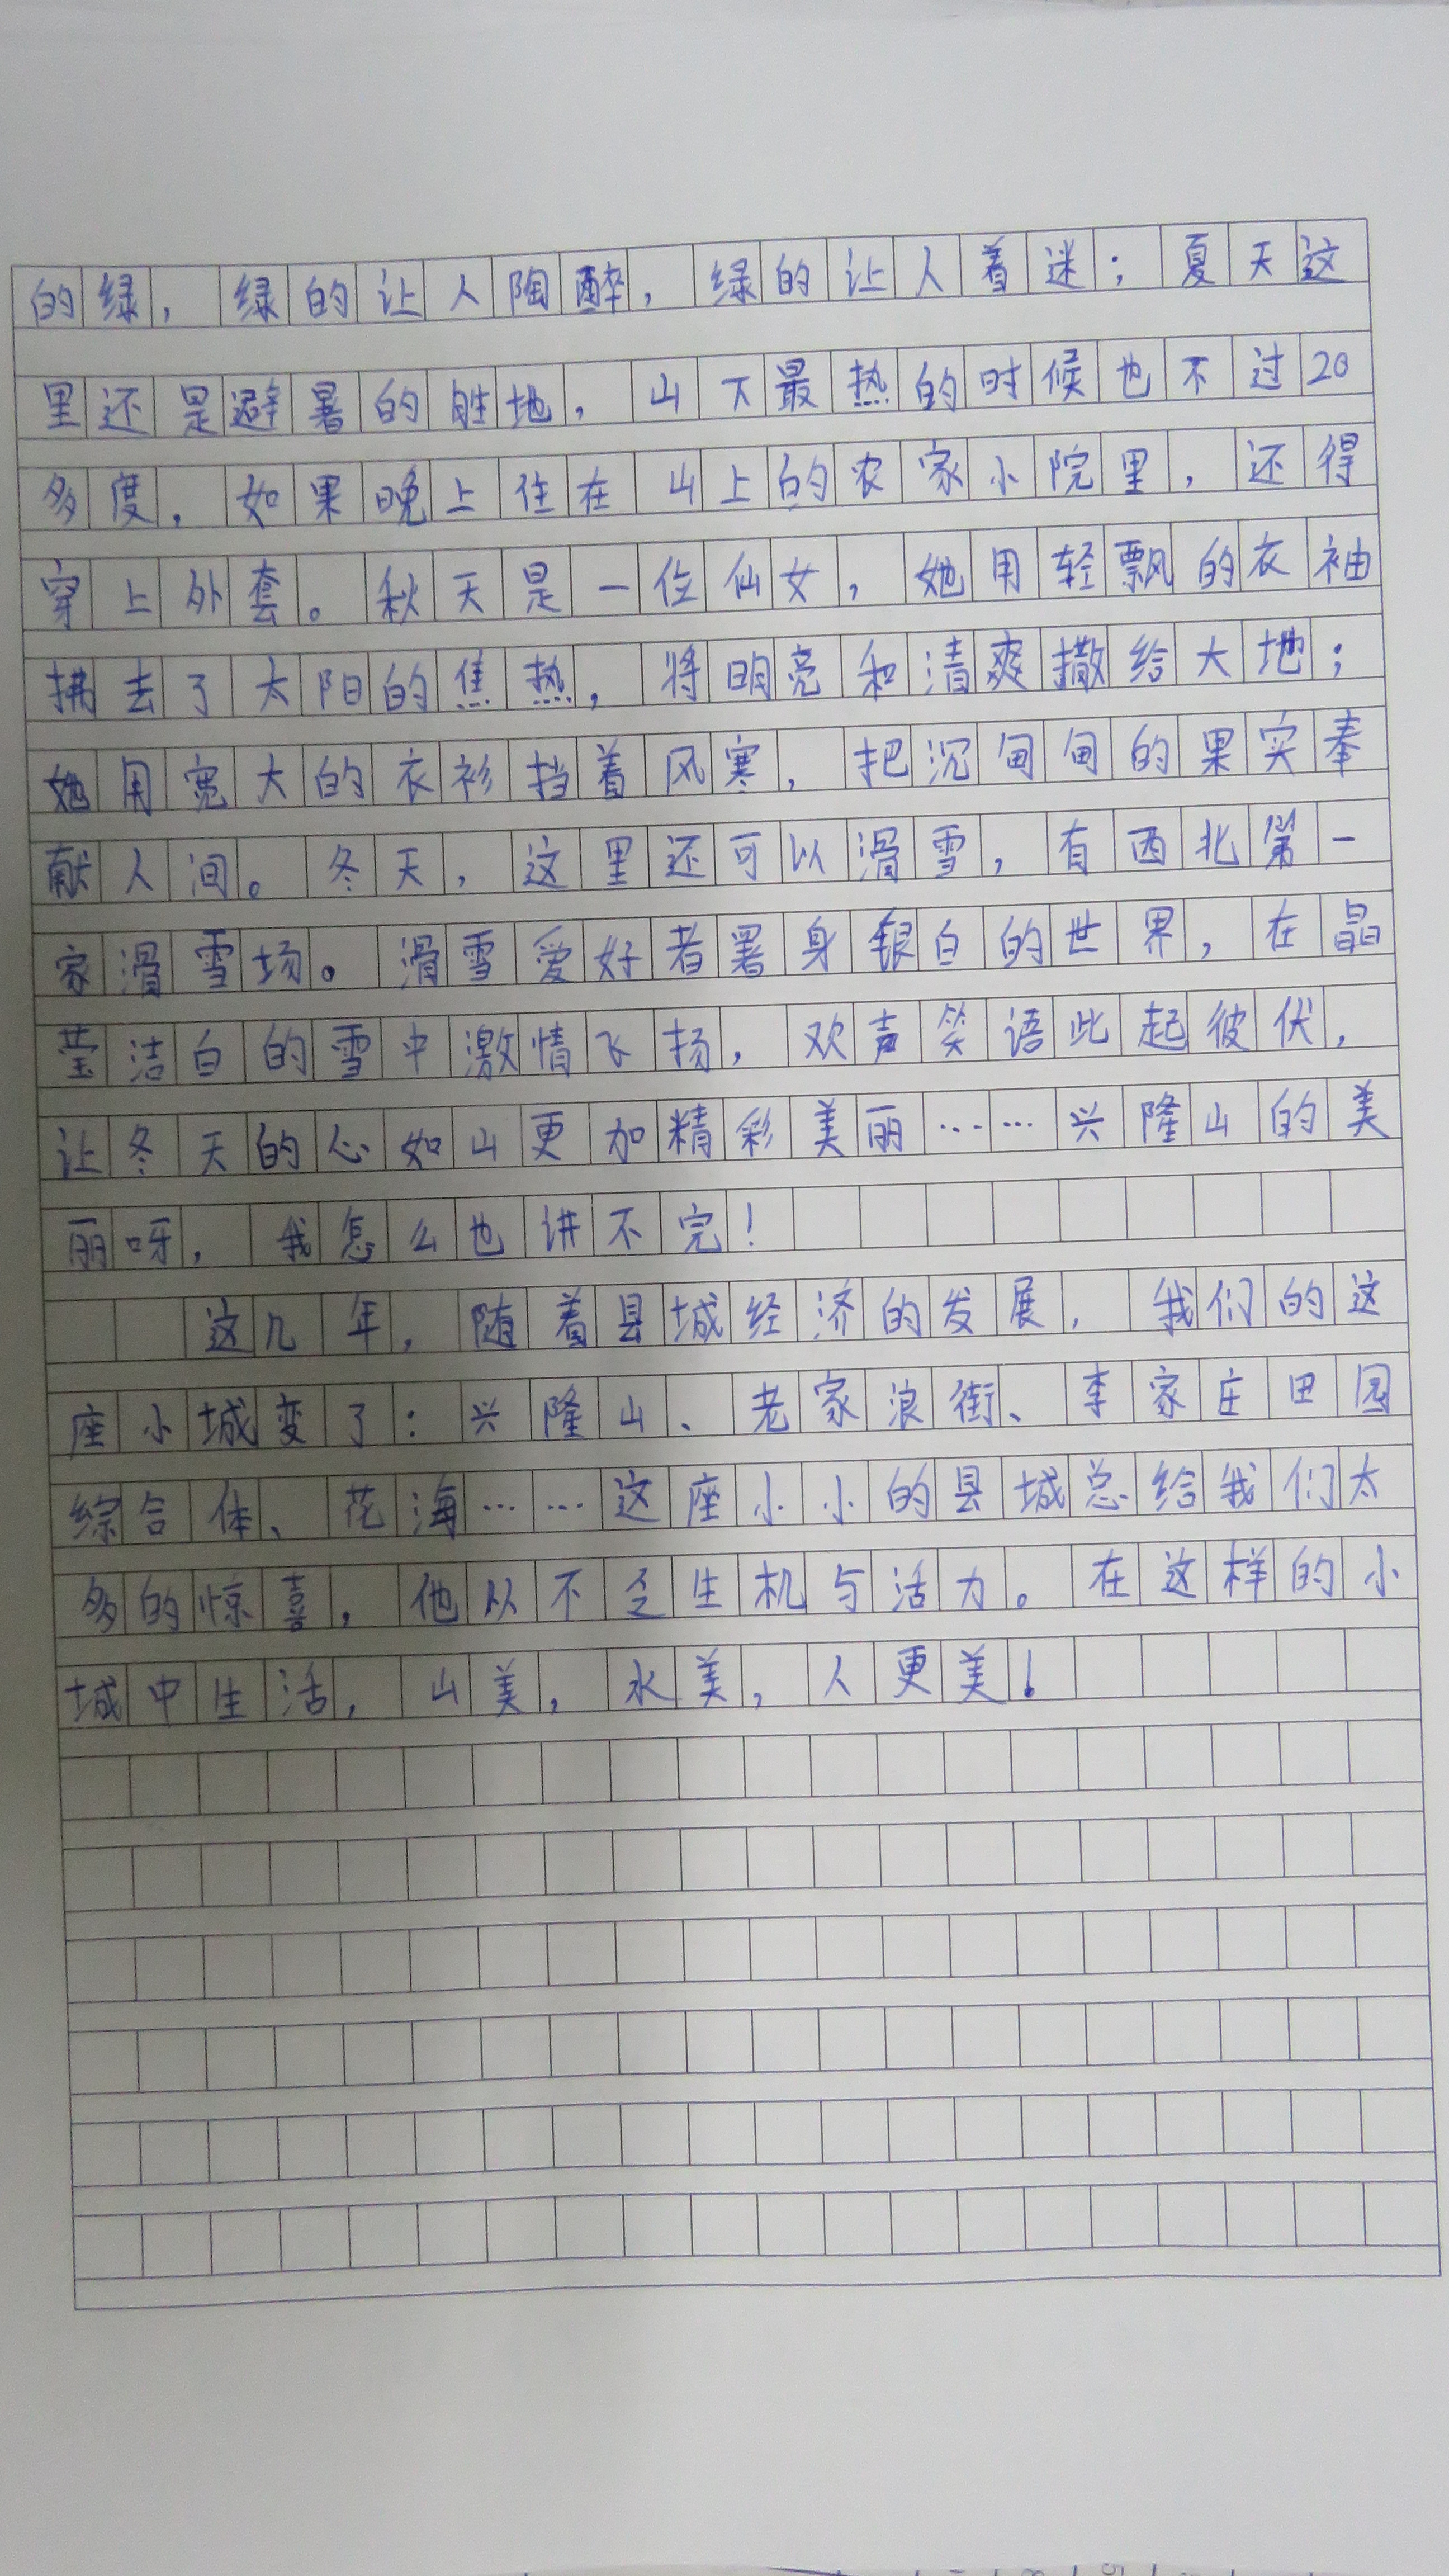 的绿，绿的让人陶醉，绿的让人着迷；夏天这
里还是避暑的胜地，山下最热的时候也不过20
多度，如果晚上住在山上的农家小院里，还得
穿上外套。秋天是一位仙女，她用轻飘的衣袖
拂去了太阳的焦热，将明亮和清爽撒给大地；
她用宽大的衣衫挡着风寒，把沉甸甸的果实奉
献人间。冬天，这里还可以滑雪，有西北第一
家滑雪场。滑雪爱好者署身银白的世界，在晶
莹洁白的雪中激情飞扬，欢声笑语此起彼伏，
让冬天的心如山更加精彩美丽……兴隆山的美
丽呀，我怎么也讲不完！
这几年，随着县城经济的发展，我们的这
座小城变了：兴隆山、老家浪街、李家庄田园
综合体、花海……这座小小的县城总给我们太
多的惊喜，他以不乏生机与活力。在这样的小
城中生活，山美，水美，人更美！